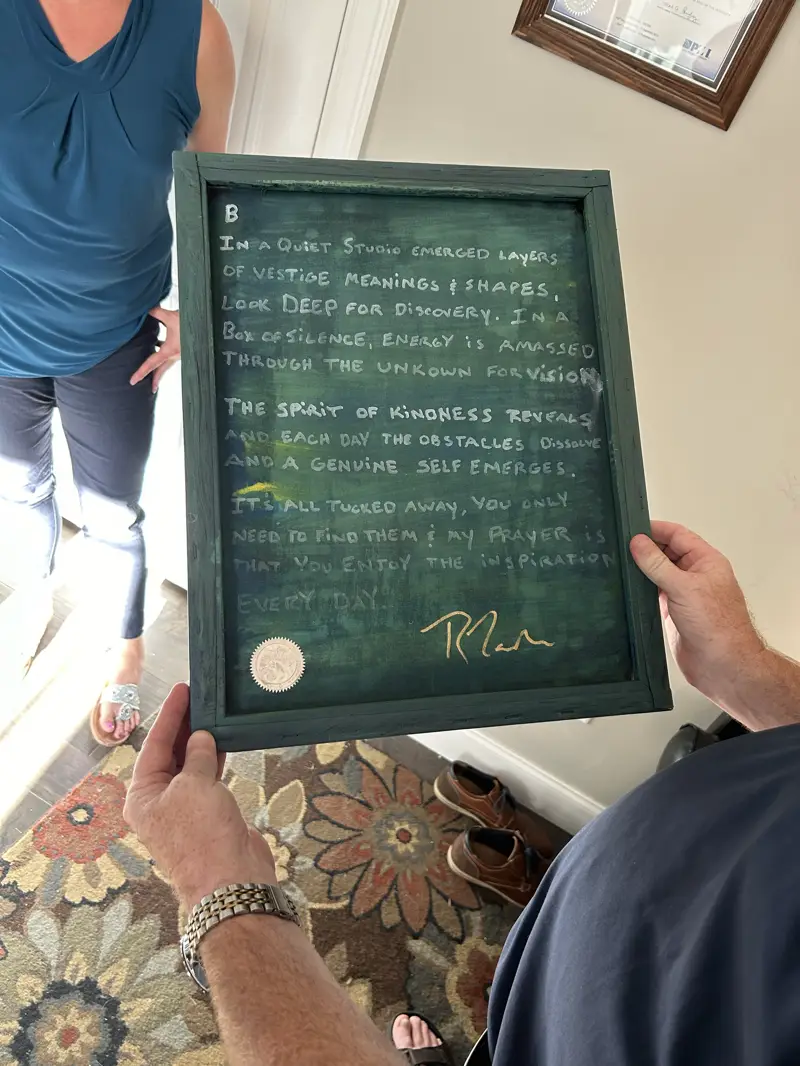 B
In a Quiet Studio emerged layers
of vestige meanings & shapes,
Look Deep for Discovery. In a
Box of silence, energy is amassed
through the unkown for vision
The spirit of kindness reveals
and each day the obstacles dissolve
and a genuine self emerges.
It's all tucked away, you only
need to find them & my prayer is
that you enjoy the inspiration
every day.